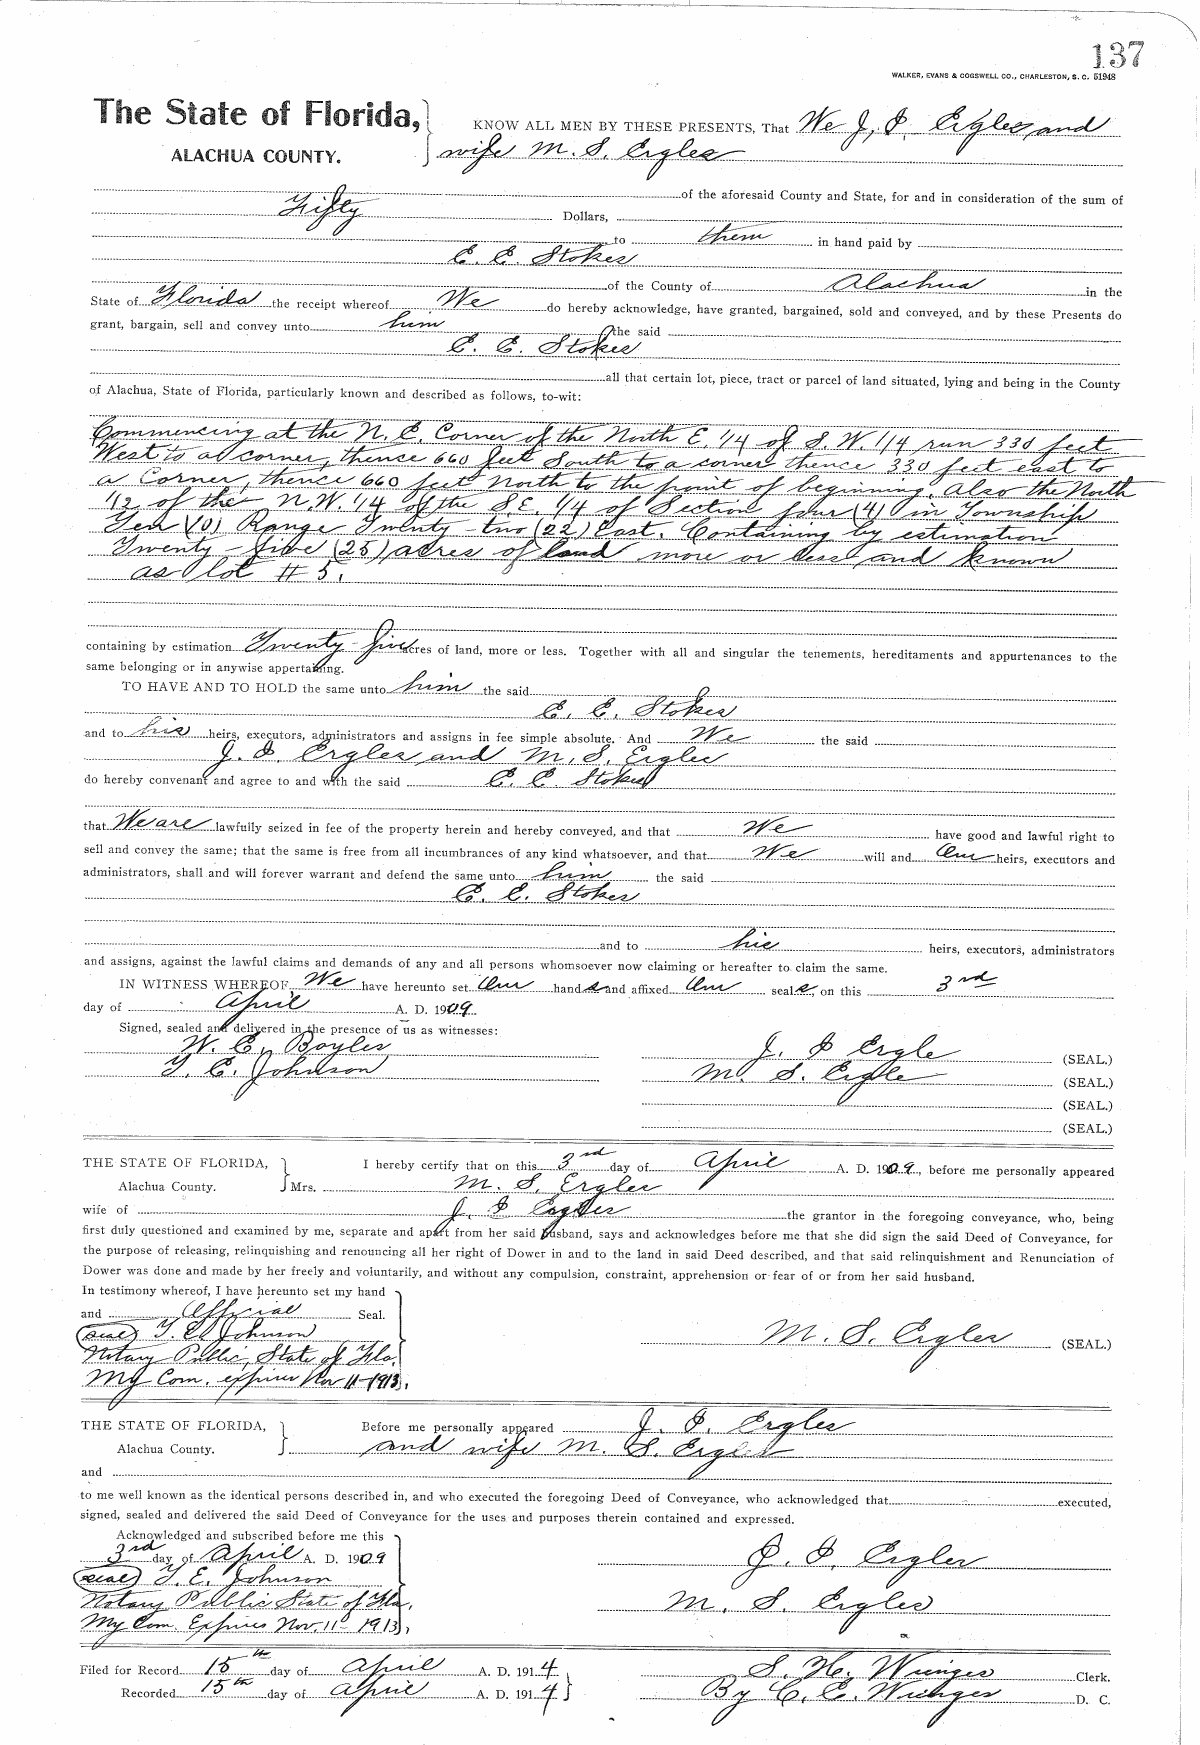 137
WALKER, EVANS & COGSWELL CO., CHARLESTON, S. C. 51948
The State of Florida,
ALACHUA COUNTY.
KNOW ALL MEN BY THESE PRESENTS, That We J. I. Ergles and
wife M. S. Ergles
of the aforesaid County and State, for and in consideration of the sum of
Fifty Dollars,
to them in hand paid by
E. E. Stokes
of the County of Alachua in the
State of Florida the receipt whereof We do hereby acknowledge, have granted, bargained, sold and conveyed, and by these Presents do
grant, bargain, sell and convey unto him the said
E. E. Stokes
all that certain lot, piece, tract or parcel of land situated, lying and being in the County
of Alachua, State of Florida, particularly known and described as follows, to-wit:
Commencing at the N. E. Corner of the North E. 1/4 of S. W. 1/4 run 330 feet
West to a corner, thence 660 feet South to a corner thence 330 feet east to
a Corner, thence 660 feet North to the point of beginning. Also the North
1/2 of the N. W. 1/4 of the S.E. 1/4 of Section four (4) in Township
Ten (10) Range Twenty-two (22) East. Containing by estimation
Twenty-five (25) acres of land more or less and known
as lot # 5.
containing by estimation Twenty-five acres of land, more or less. Together with all and singular the tenements, hereditaments and appurtenances to the
same belonging or in anywise appertaining.
TO HAVE AND TO HOLD the same unto him the said
E. E. Stokes
and to his heirs, executors, administrators and assigns in fee simple absolute. And We the said
J. I. Ergles and M. S. Ergles
do hereby convenant and agree to and with the said E. E. Stokes
that We are lawfully seized in fee of the property herein and hereby conveyed, and that We have good and lawful right to
sell and convey the same; that the same is free from all incumbrances of any kind whatsoever, and that We will and Our heirs, executors and
administrators, shall and will forever warrant and defend the same unto him the said
E. E. Stokes
and to his heirs, executors, administrators
and assigns, against the lawful claims and demands of any and all persons whomsoever now claiming or hereafter to claim the same.
IN WITNESS WHEREOF We have hereunto set Our hands and affixed Our seals, on this 3rd
day of April A. D. 1909
Signed, sealed and delivered in the presence of us as witnesses:
W. E. Boyles
T. E. Johnson
J. I Ergle (SEAL.)
M. S. Ergle (SEAL.)
(SEAL.)
(SEAL.)
THE STATE OF FLORIDA,
Alachua County.
I hereby certify that on this 3rd day of April A. D. 1909, before me personally appeared
Mrs. M. S. Ergles
wife of J. I Ergles the grantor in the foregoing conveyance, who, being
first duly questioned and examined by me, separate and apart from her said husband, says and acknowledges before me that she did sign the said Deed of Conveyance, for
the purpose of releasing, relinquishing and renouncing all her right of Dower in and to the land in said Deed described, and that said relinquishment and Renunciation of
Dower was done and made by her freely and voluntarily, and without any compulsion, constraint, apprehension or fear of or from her said husband.
In testimony whereof, I have hereunto set my hand
and Official Seal.
(seal) T. E. Johnson
Notary Public, State of Fla.
My Com. expires Nov 11-1913.
M. S. Ergles (SEAL.)
THE STATE OF FLORIDA,
Alachua County.
Before me personally appeared J. I. Ergles
and wife M. S. Ergles
and
to me well known as the identical persons described in, and who executed the foregoing Deed of Conveyance, who acknowledged that executed,
signed, sealed and delivered the said Deed of Conveyance for the uses and purposes therein contained and expressed.
Acknowledged and subscribed before me this
3rd day of April A. D. 1909
(seal) T. E. Johnson
Notary Public State of Fla.
My Com. Expires Nov. 11- 1913.
J. I. Ergles
M. S. Ergles
Filed for Record 15th day of April A. D. 1914
Recorded 15th day of April A. D. 1914
S. H. Wienges Clerk.
By C. E. Wienges D. C.